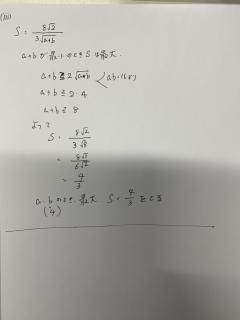 (iii)
S = 8√2 / 3√(a+b)
a+b が 最小のとき S は最大.
a+b ≧ 2√(a・b) < ab=16より
a+b ≧ 2・4
a+b ≧ 8
よって
S = 8√2 / 3√8
= 8√2 / 6√2
= 4/3
a=b のとき 最大 S = 4/3 をとる
(=4)